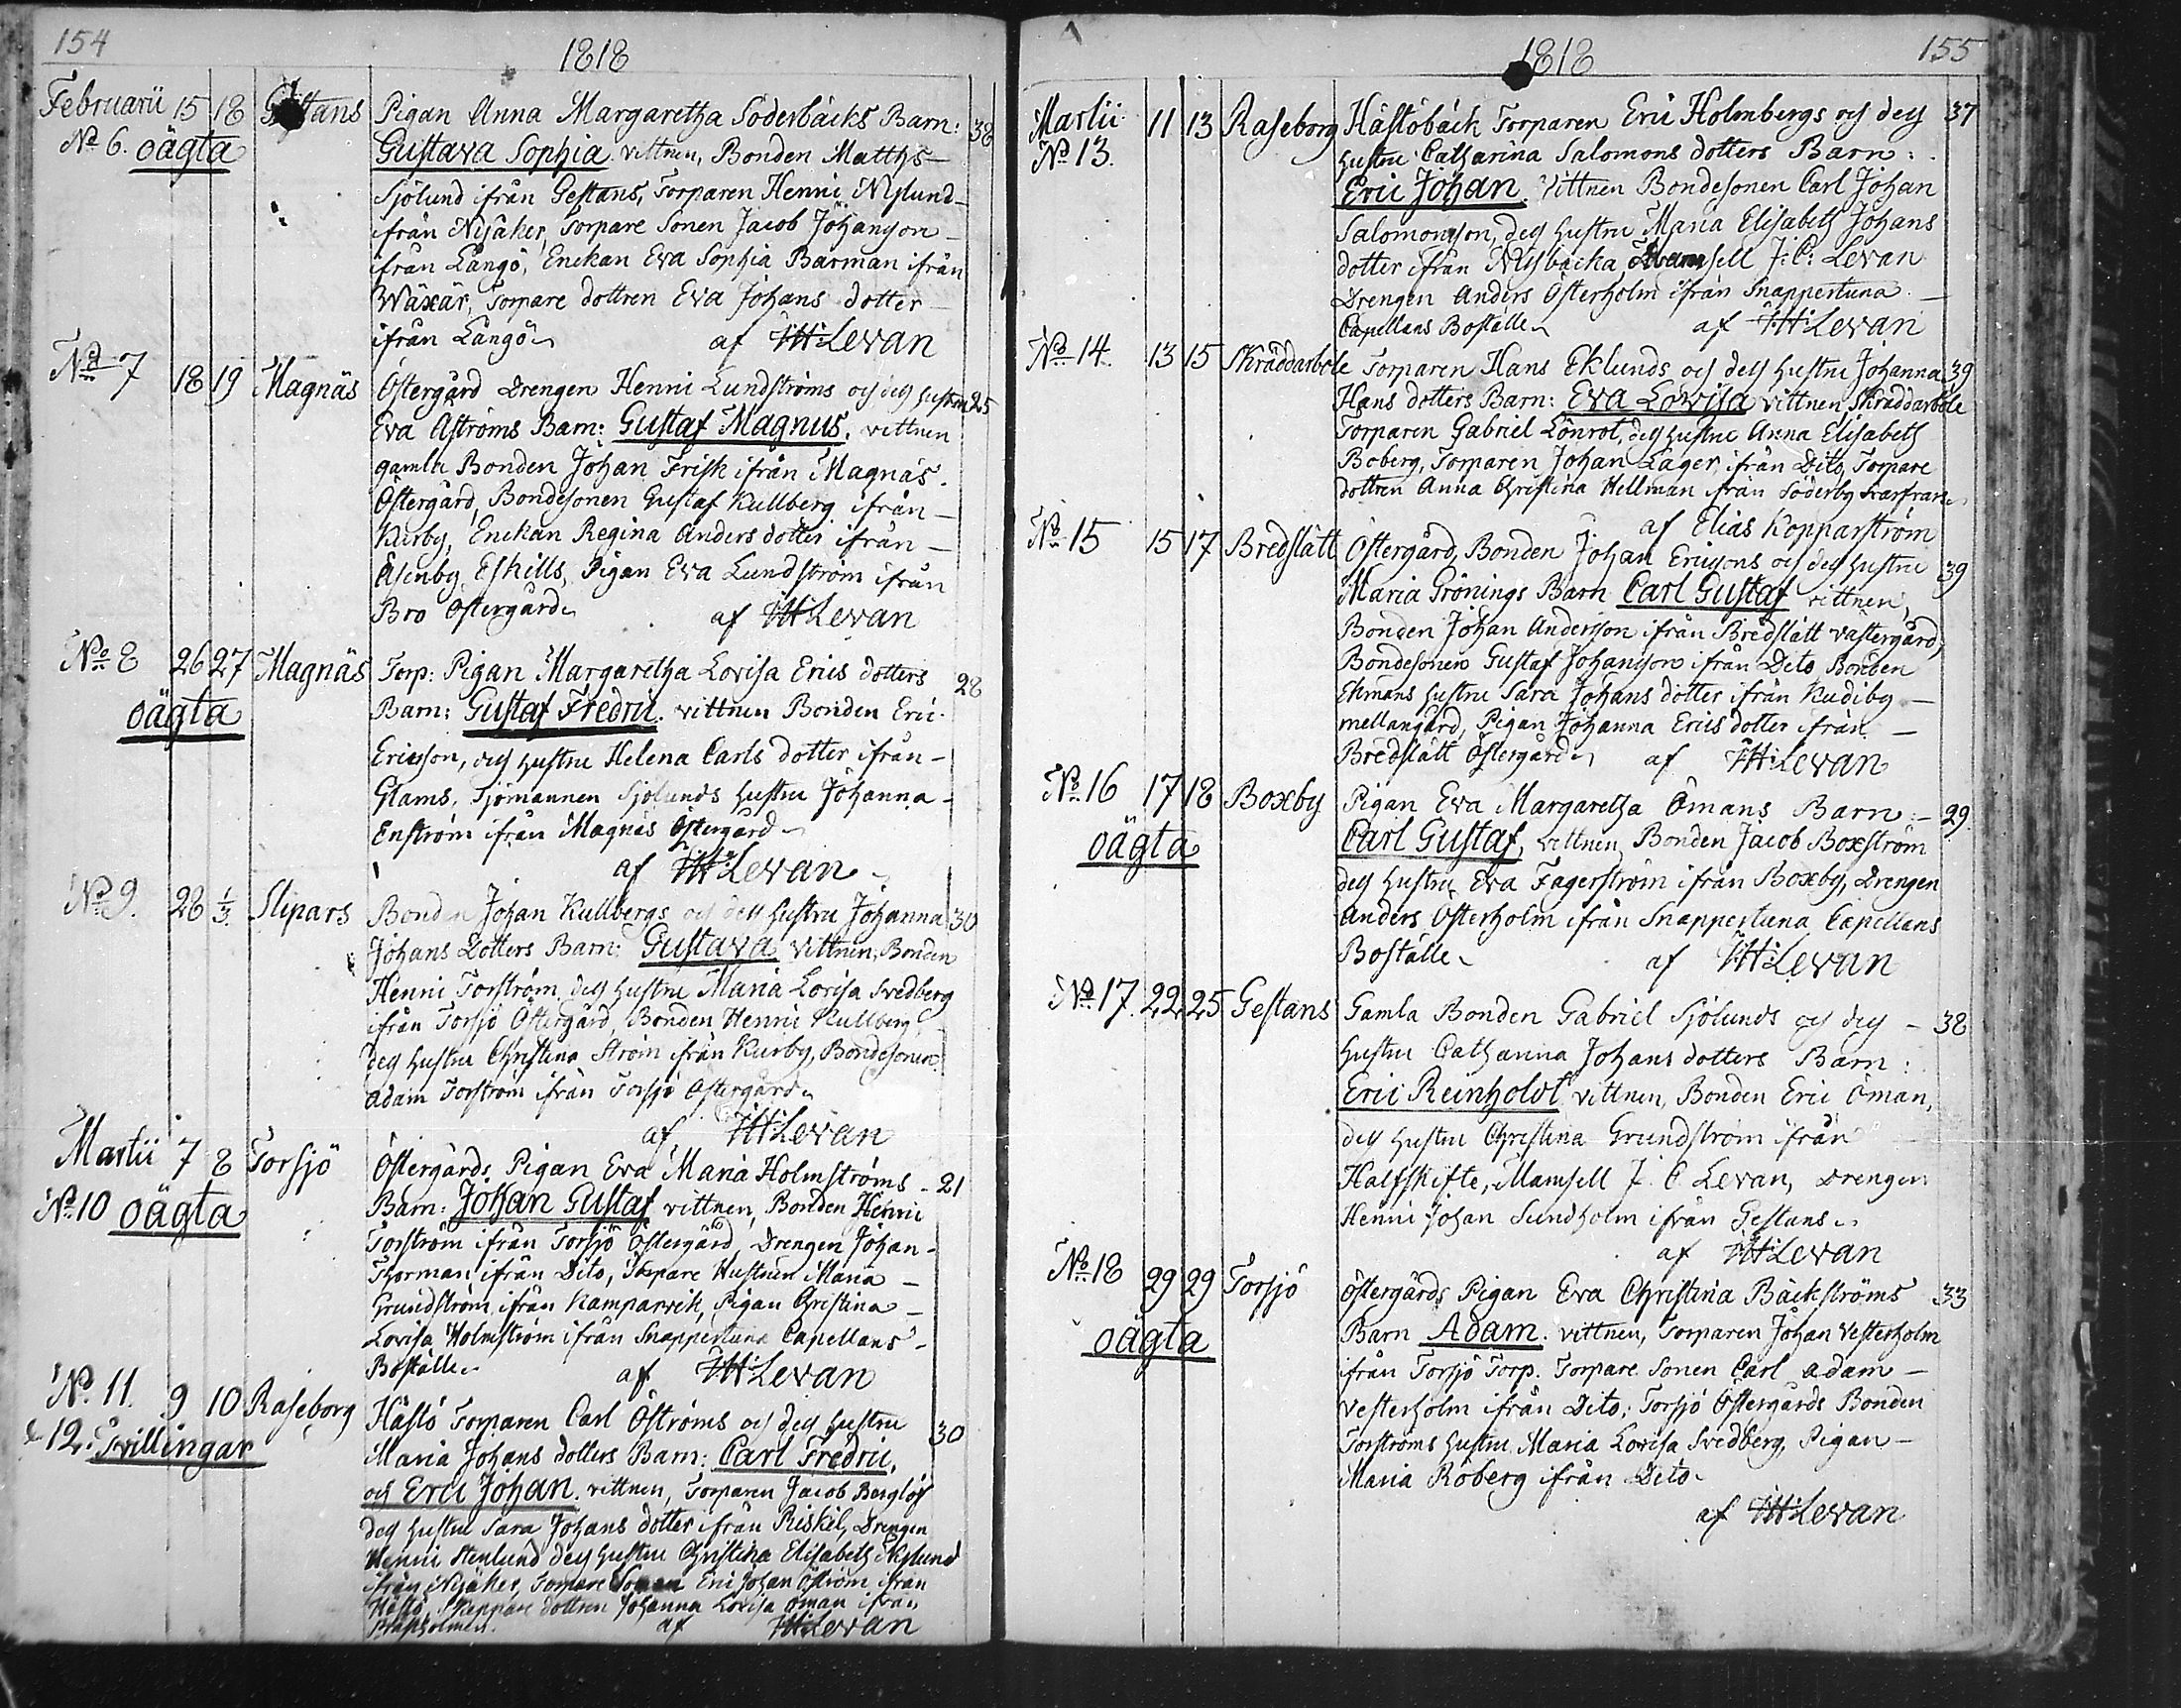 154
1818
Februarii 15 18 Gestans Pigan Anna Margaretha Söderbäcks Barn: 38
No 6. oägta Gustava Sophia. vittnen, Bonden Matths
Sjölund ifrån Gestans, Torparen Henric Nylund
ifrån Nyåker, Torpare Sonen Jacob Johanson
ifrån Långö, Enckan Eva Sophia Barman ifrån
Wäxär, Torpare dottren Eva Johans dotter
ifrån Långö af Levan
No 7 18 19 Magnäs Östergård Drengen Henric Lundströms och dess hustru 25
Eva Åströms Barn: Gustaf Magnus. vittnen
gamla Bonden Johan Frisk ifrån Magnäs
Östergård, Bondesonen Gustaf Kullberg ifrån
Kurby, Enckan Regina Anders dotter ifrån
Åsenby Eskills, Pigan Eva Lundström ifrån
Bro Östergård af Levan
No 8 26 27 Magnäs Torp: Pigan Margaretha Lovisa Erics dotters 28
oägta Barn: Gustaf Fredric. vittnen Bonden Eric
Ericson, dess hustru Helena Carls dotter ifrån
Glams, Sjömannen Sjölunds hustru Johanna
Enström ifrån Magnäs Östergård
af Levan
No 9. 28 1/3 Slipars Bonden Johan Kullbergs och dess hustru Johanna 30
Johans Dotters Barn: Gustava vittnen, Bonden
Henric Torström dess hustru Maria Lovisa Svedberg
ifrån Torsjö Östergård, Bonden Henric Kullberg
dess hustru Christina Ström ifrån Kurby, Bondesonen
Adam Torström ifrån Torsjö Östergård
af Levan
Martii 7 8 Torsjö Östergårds Pigan Eva Maria Holmströms 21
No 10 oägta Barn: Johan Gustaf vittnen, Bonden Henric
Torström ifrån Torsjö Östergård, Drengen Johan
Thorman ifrån Dito, Torpare Hustrun Maria
Grundström ifrån Kamparvik, Pigan Christina
Lovisa Holmström ifrån Snappertuna Capellans
Boställe af Levan
No 11. 9 10 Raseborg Hästö Torparen Carl Öströms och dess hustru 30
& 12. Tvillingar Maria Johans dotters Barn: Carl Fredric,
och Eric Johan. vittnen, Torparen Jacob Berglöf
dess hustru Sara Johans dotter ifrån Riskil, Drengen
Henric Stenlund dess hustru Christina Elisabeth Nylund
ifrån Nyåker, Torpare Sonen Eric Johan Öström ifrån
Hästö, Skeppare dottren Johanna Lovisa Öman ifrån
af Levan
1818
155
Martii 11 13 Raseborg Hästöbäck Torparen Eric Holmbergs och dess 37
No 13. hustru Catharina Salomons dotters Barn:
Eric Johan. Vittnen Bondesonen Carl Johan
Salomonson, dess hustru Maria Elisabeth Johans
dotter ifrån Nybacka, Mamsell J: C: Levan
Drengen Anders Österholm ifrån Snappertuna
Capellans Boställe af Levan
No 14. 13 15 Skräddarböle Torparen Hans Eklunds och dess hustru Johanna 39
Hans dotters Barn: Eva Lovisa vittnen, Skräddarböle
Torparen Gabriel Lönrot, dess hustru Anna Elisabeth
Boberg, Torparen Johan Lager ifrån Dito, Torpare
dottren Anna Christina Hellman ifrån Söderby
af Elias Kopparström
No 15 15 17 Bredslätt Östergård, Bonden Johan Ericsons och dess hustru 39
Maria Grönings Barn Carl Gustaf vittnen,
Bonden Johan Anderson ifrån Bredslätt västergård,
Bondesonen Gustaf Johanson ifrån Dito Bonden
Ekmans hustru Sara Johans dotter ifrån Kudiby
mellangård, Pigan Johanna Erics dotter ifrån
Bredslätt Östergård af Levan
No 16 17 18 Boxby Pigan Eva Margaretha Ömans Barn: 29
oägta Carl Gustaf, vittnen, Bonden Jacob Boxström
dess hustru Eva Fagerström ifrån Boxby, Drengen
Anders Österholm ifrån Snappertuna Capellans
Boställe af Levan
No 17. 22 25 Gestans Gamla Bonden Gabriel Sjölunds och dess 38
hustru Catharina Johans dotters Barn:
Eric Reinholdt vittnen, Bonden Eric Öman,
dess hustru Christina Grundström ifrån
Halfskifte, Mamsell J. C. Levan, Drengen
Henric Johan Sundholm ifrån Gestans
af Levan
No 18 29 29 Torsjö Östergårds Pigan Eva Christina Bäckströms 33
oägta Barn Adam. vittnen, Torparen Johan Vesterholm
ifrån Torsjö Torp. Torpare Sonen Carl Adam
Vesterholm ifrån Dito, Torsjö Östergårds Bonden
Torströms hustru Maria Lovisa Svedberg, Pigan
Maria Röberg ifrån Dito
af Levan